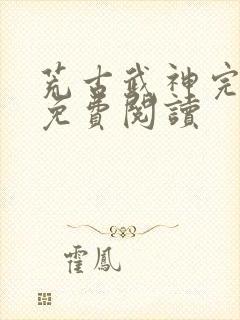 荒古武神完
免費閱讀
霍鳳